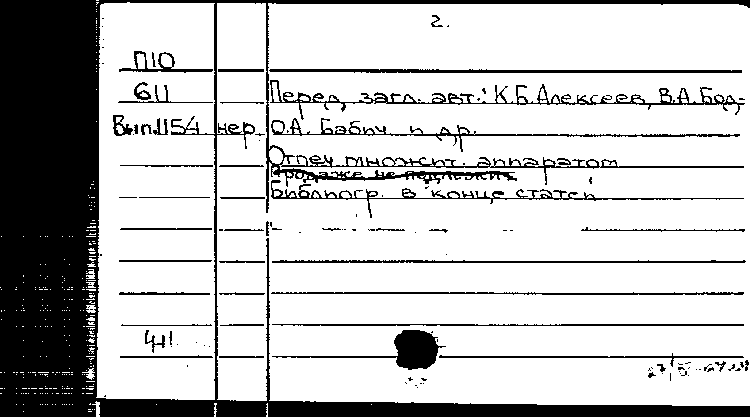 2.
П10
611 Перед загл. авт.: К.Б.Алексеев, В.А.Бод-
Вып.1154 нер, О.А. Бабич и др.
Отпеч. множит. аппаратом
Продаже не подлежит
Библиогр. в конце статей